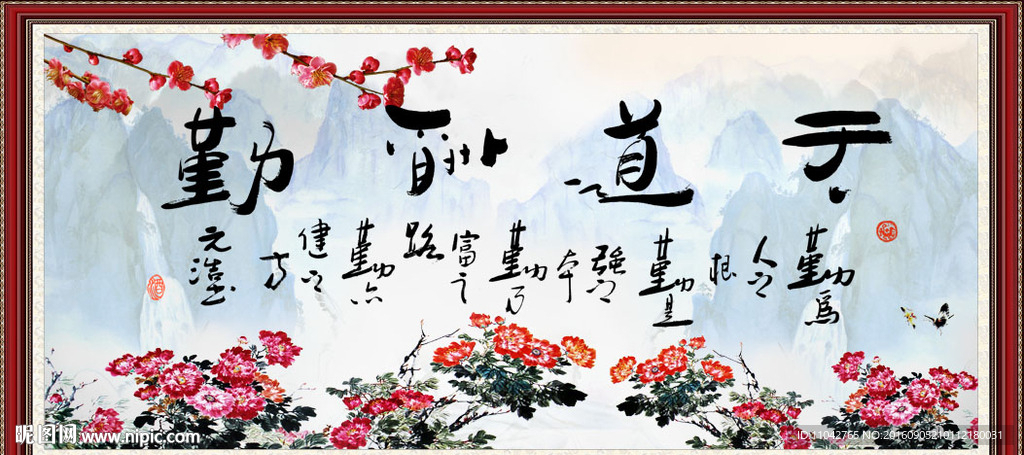 天道酬勤
勤為
人之
根
勤是
强之
本
勤乃
富之
路
勤亦
健之
方
元浩书
昵图网 www.nipic.com
ID:11042765 NO:20160905210112180031